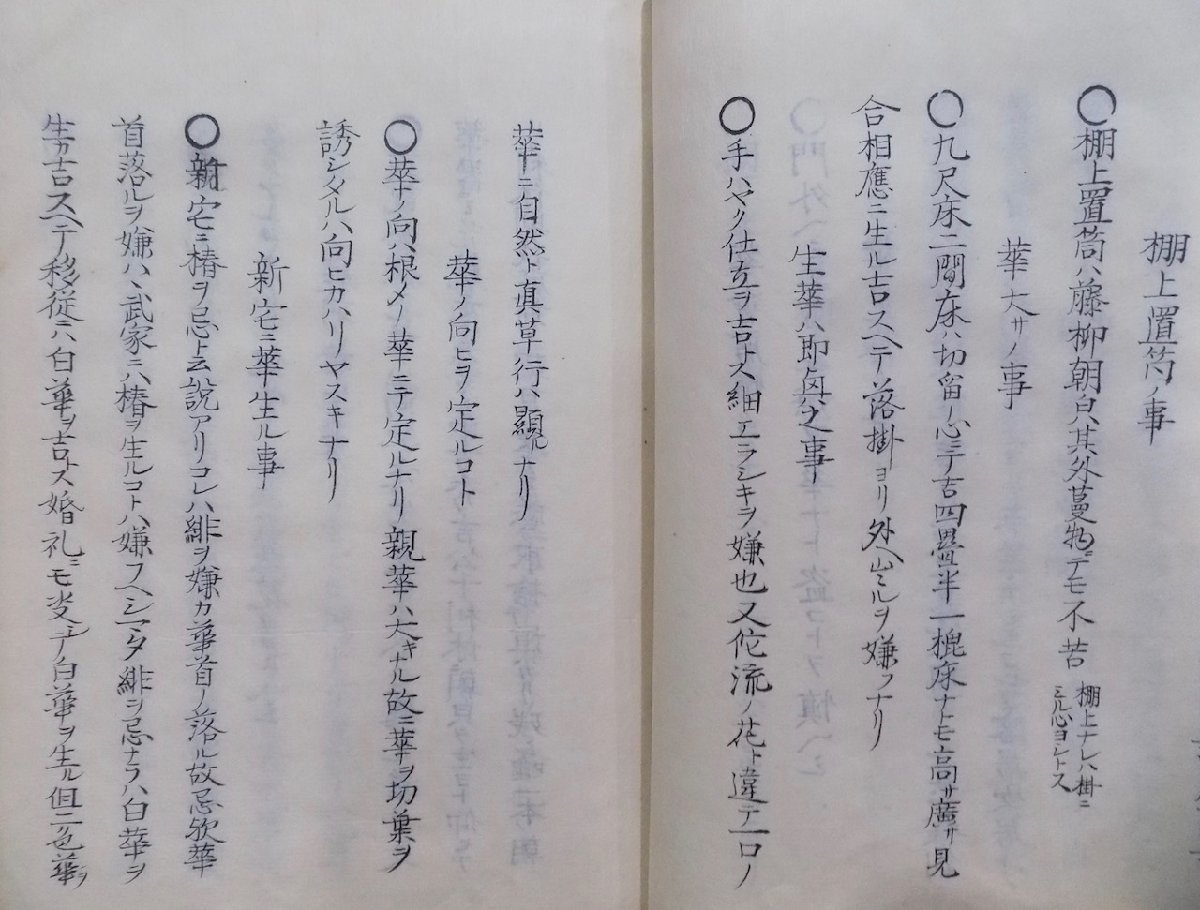 棚上置筒ノ事
〇棚上置筒ハ藤柳朝白其外蔓物ニテモ不苦 棚上ナレハ掛ニ
ミル心ヨシトス
華大サノ事
〇九尺床二間床ハ切留ノ心ニテ吉四畳半一梍床ナトモ高サ廣サ見
合相應ニ生ル吉スヘテ落掛ヨリ外ヘ出ミルヲ嫌フナリ
生華ハ即興之事
〇手ハヤク仕立ヲ吉トス細エラシキヲ嫌也又佗流ノ花ト違テ一口ノ
華ニ自然ト真草行ハ顯ルナリ
華ノ向ヒヲ定ルコト
〇華ノ向ハ根〆ノ華ニテ定ルナリ親華ハ大キナル故ニ華ヲ切葉ヲ
誘シタメルハ向ヒカハリヤスキナリ
新宅ニ華生ル事
〇新宅ニ椿ヲ忌ト云説アリコレハ緋ヲ嫌カ華首ノ落ル故忌欤華
首落ルヲ嫌ハヽ武家ニハ椿ヲ生ルコトハ嫌フヘシマタ緋ヲ忌ナラハ白華ヲ
生カ吉スヘテノ移従ニハ白華ヲ吉トス婚礼ニモ麦テ白華ヲ生ル但二色華ヲ